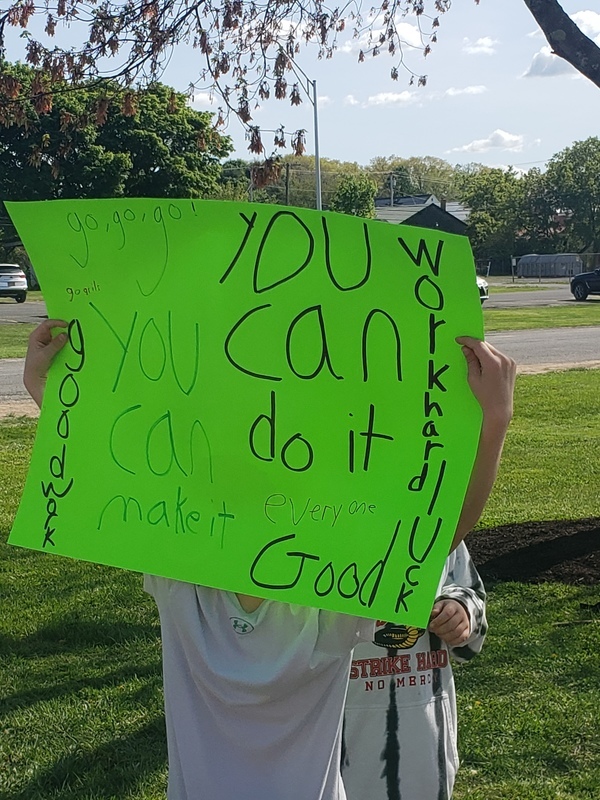 go, go, go!
go girls
good work
YOU
can
make it
YOU
can
do it
every one
Good luck
Work hard
STRIKE HARD
NO MERC